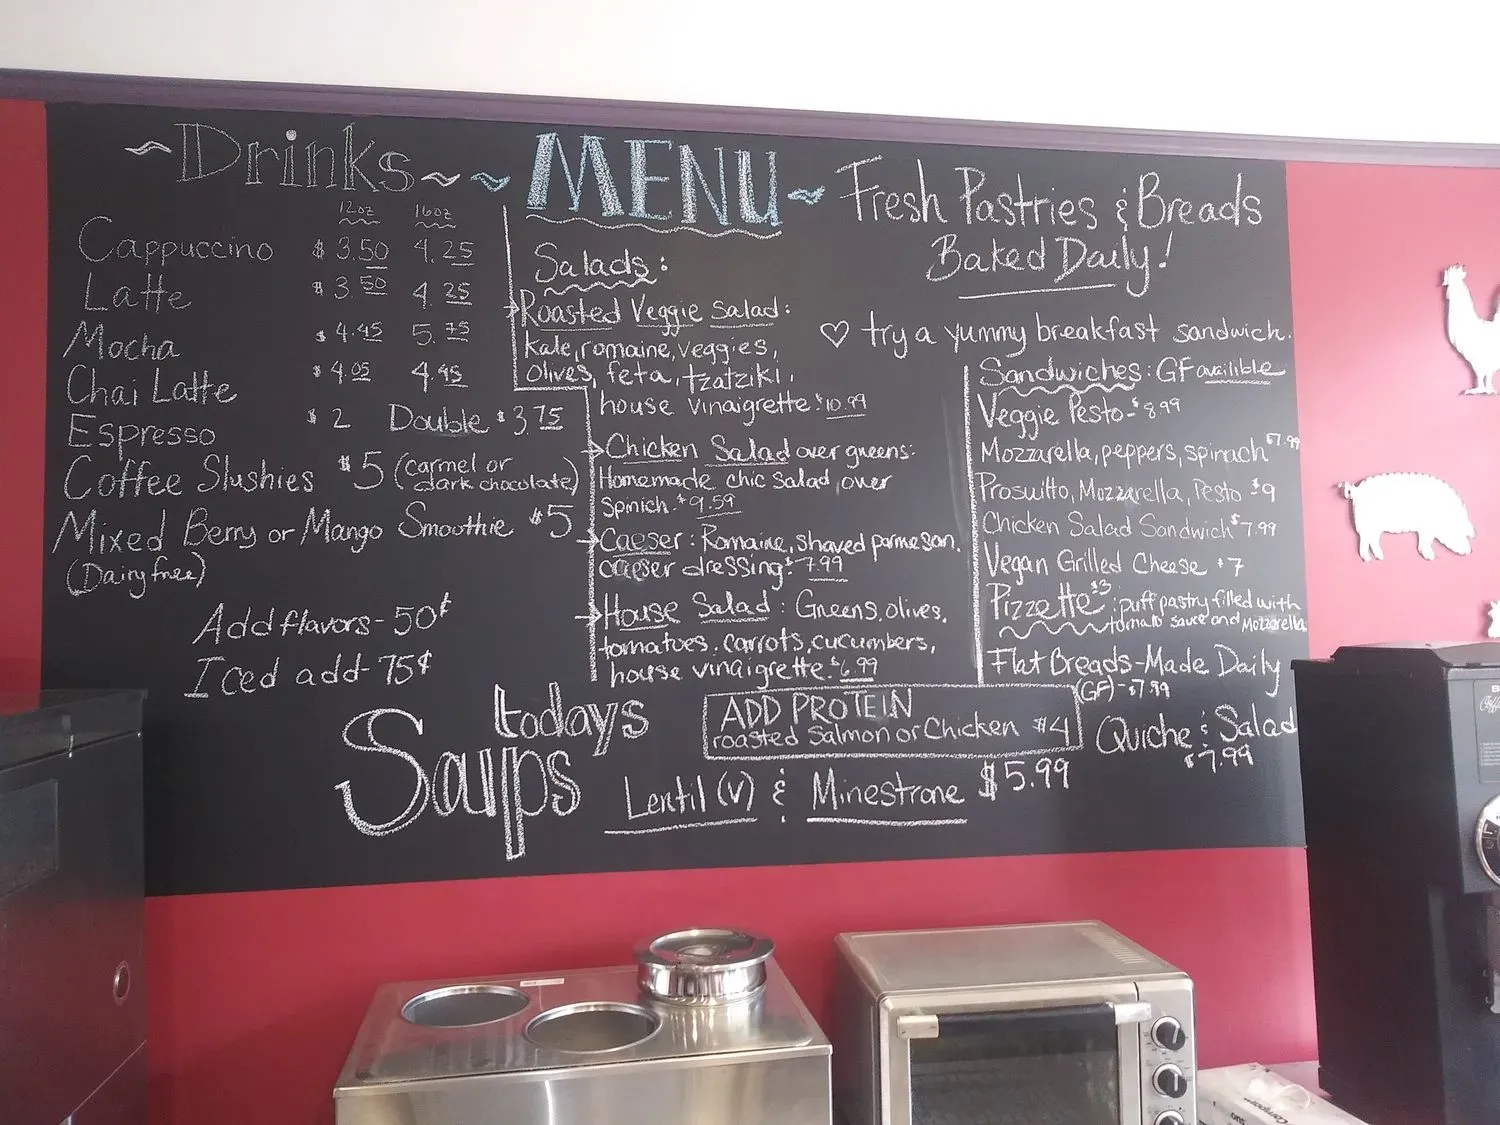 ~Drinks~
12oz 16oz
Cappuccino $3.50 4.25
Latte $3.50 4.25
Mocha $4.45 5.75
Chai Latte $4.05 4.45
Espresso $2 Double $3.75
Coffee Slushies $5 (carmel or
dark chocolate)
Mixed Berry or Mango Smoothie $5
(Dairy free)
Add flavors-50¢
Iced add-75¢
~MENU~
Salads:
Roasted Veggie Salad:
kale, romaine, veggies,
olives, feta, tzatziki,
house vinaigrette $10.99
Chicken Salad over greens:
Homemade chic salad, over
spnich-$9.59
Caeser: Romaine, shaved parmesan,
caeser dressing $7.99
House Salad: Greens, olives,
tomatoes, carrots, cucumbers,
house vinaigrette $6.99
ADD PROTEIN
roasted Salmon or Chicken $4
Fresh Pastries & Breads
Baked Daily!
♡ try a yummy breakfast sandwich.
Sandwiches: GF availible
Veggie Pesto-$8.99
Mozzarella, peppers, spinach $7.99
Proswitto, Mozzarella, Pesto $9
Chicken Salad Sandwich $7.99
Vegan Grilled Cheese $7
Pizzette $3: puff pastry filled with
tomato sauce and Mozzarella
Flat Breads-Made Daily
(GF)-$7.99
Quiche & Salad
$7.99
todays
Soups
Lentil (v) & Minestrone $5.99